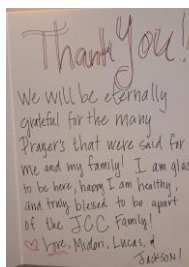 Thank You!!
We will be eternally
grateful for the many
Prayers that were said for
me and my family! I am glad
to be here, happy I am healthy,
and truly blessed to be apart
of the JCC Family!
♡ Love, Midori, Lucas, &
Jackson!